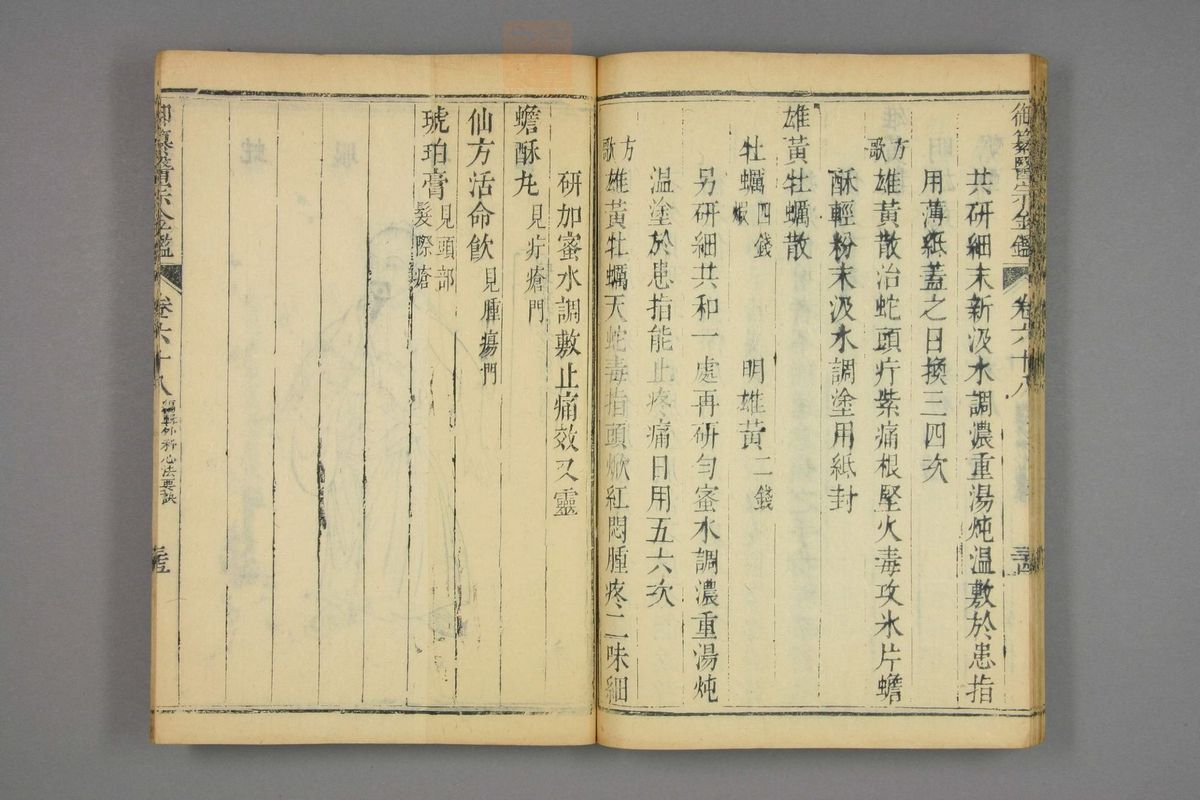 御纂醫宗金鑑 卷六十八
共研細末新汲水調濃重湯炖温敷於患指
用薄紙蓋之日換三四次
方歌 雄黃散治蛇頭疔紫痛根堅火毒攻氷片蟾
酥輕粉末汲水調塗用紙封
雄黃牡蠣散
牡蠣四錢煅 明雄黃二錢
另研細共和一處再研勻蜜水調濃重湯炖
温塗於患指能止疼痛日用五六次
方歌 雄黃牡蠣天蛇毒指頭焮紅悶腫疼二味細
研加蜜水調敷止痛效又靈
蟾酥丸見疔瘡門
仙方活命飲見腫瘍門
琥珀膏見頭部髮際瘡
御纂醫宗金鑑 卷六十八 編輯外科心法要訣